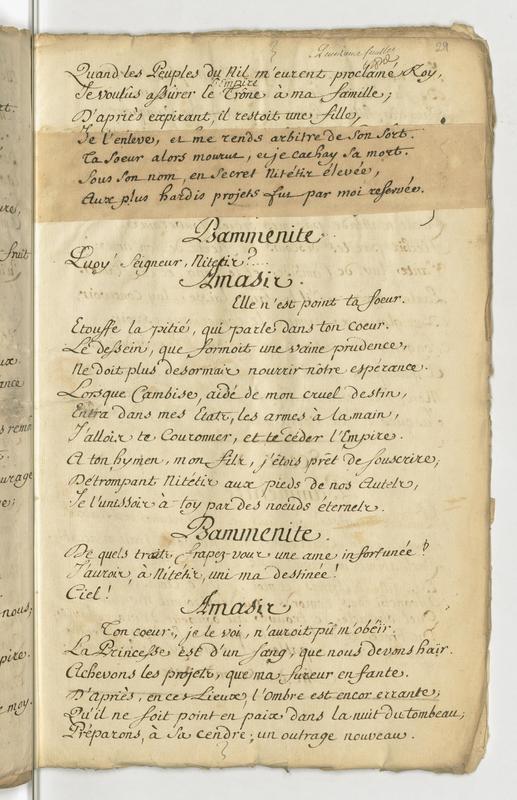 29
Quand les Peuples du Nil m'eurent proclamé Roy,
l'Empire
Je voulus assurer le Trône à ma famille;
D'apriès expirant, il restoit une fille,
Je l'enleve, et me rends arbitre de son sort.
Ta soeur alors mourut, et je cachay sa mort.
Sous son nom, en secret Nitétis élevée,
Aux plus hardis projets fut par moi reservée.
Psammenite
Quoy! Seigneur, Nitétis?....
Amasis.
Elle n'est point ta soeur.
Etouffe la pitié, qui parle dans ton coeur.
Le dessein, que formoit une vaine prudence,
Ne doit plus desormais nourrir nôtre espérance.
Lorsque Cambise, aidé de mon cruel destin,
Entra dans mes Etats, les armes à la main,
J'allois te Couronner, et te céder l'Empire.
A ton hymen, mon fils, j'étois prêt de souscrire;
Détrompant Nitétis aux pieds de nos Autels,
Je l'unissois à toy par des noeuds éternels.
Psammenite.
De quels traits frapez-vous une ame infortunée?
J'aurois, à Nitétis, uni ma destinée!
Ciel!
Amasis
Ton coeur, je le voi, n'auroit pû m'obéir.
La Princesse est d'un sang, que nous devons haïr.
Achevons les projets, que ma fureur enfante.
D'apriès, en ces Lieux, l'Ombre est encor errante;
Qu'il ne soit point en paix dans la nuit du tombeau;
Préparons, à sa cendre, un outrage nouveau.
rt.
ure,
fruit
ux.
ance
s remor
urage
re;
nous;
pire.
e moy.